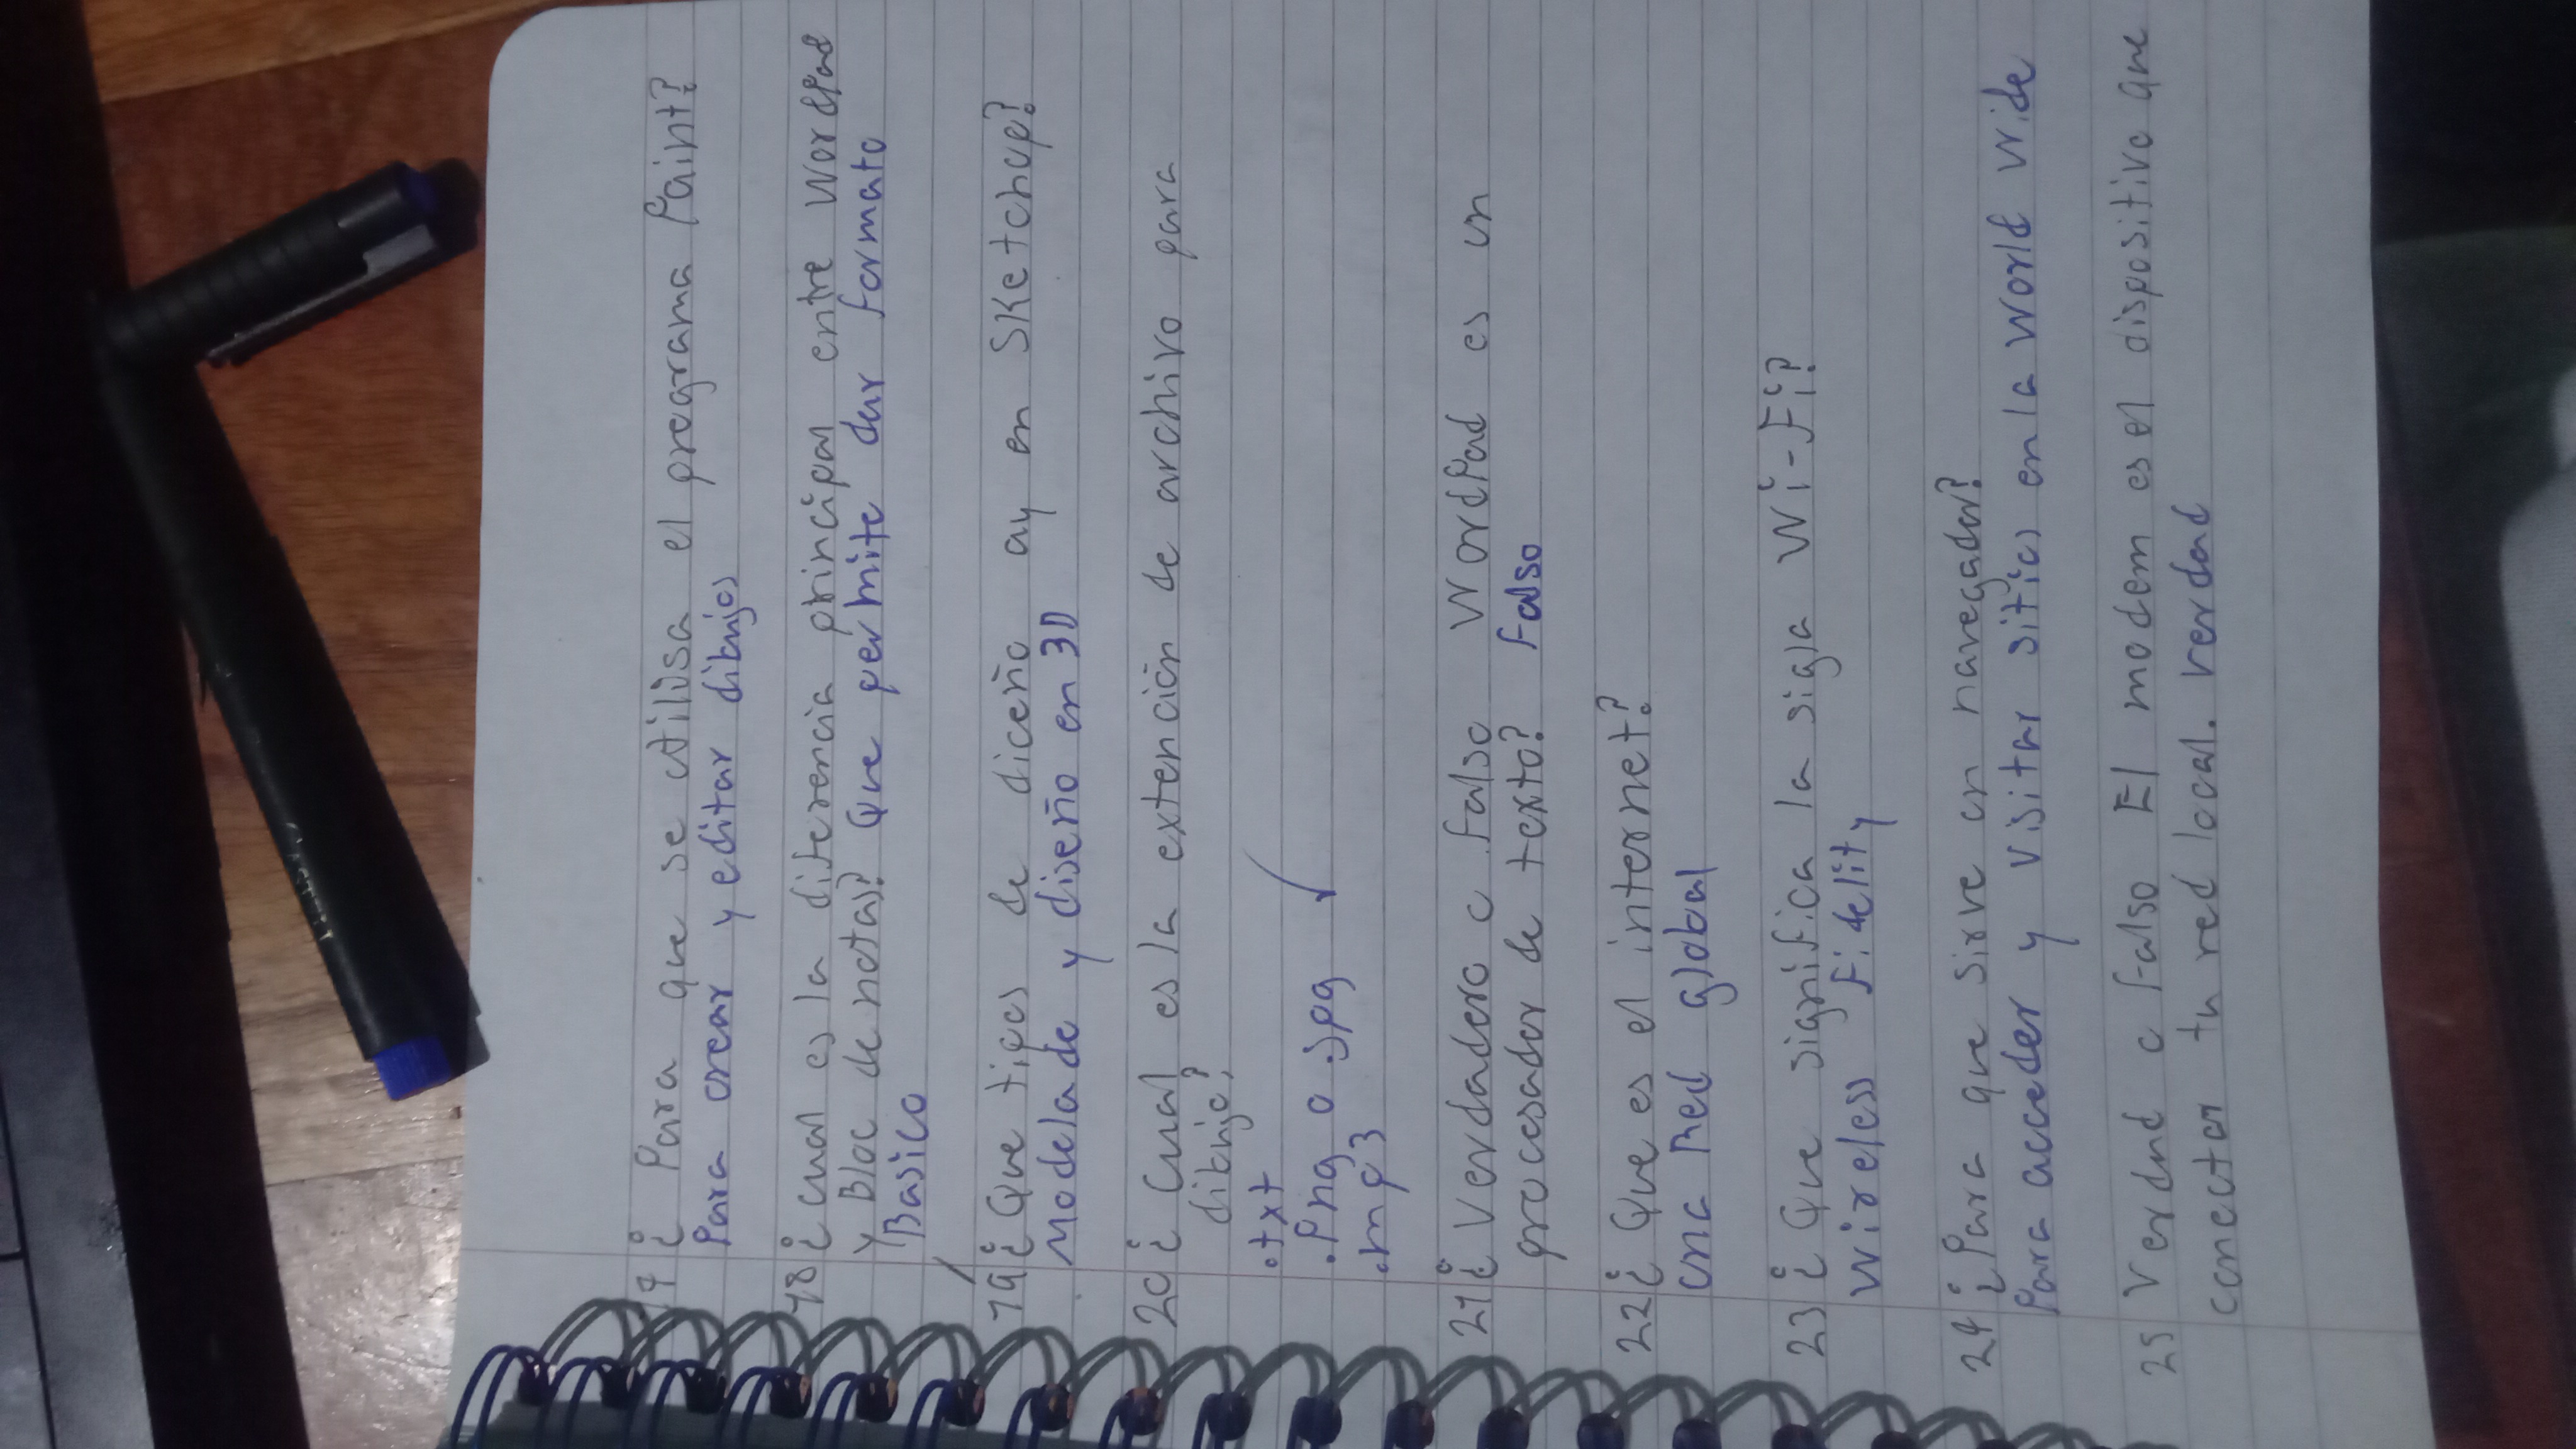 17 ¿Para que se utilisa el programa Paint?
Para crear y editar dibujos
18 ¿cual es la diferencia principal entre WordPad
y Bloc de notas? Que permite dar formato
Basico
19 ¿Que tipos de diceño ay en Sketchup?
Modelado y diseño en 3D
20 ¿Cual es la extención de archivo para
dibujo?
.txt
.Png o .Jpg ✓
.mp3
21 ¿Verdadero o falso WordPad es un
procesador de texto? Falso
22 ¿Que es el internet?
una Red global
23 ¿Que significa la sigla Wi-Fi?
Wireless Fidelity
24 ¿Para que sirve un navegador?
Para acceder y visitar sitios en la World Wide
25 Verdad o falso El modem es el dispositivo que
conectar tu red local. verdad